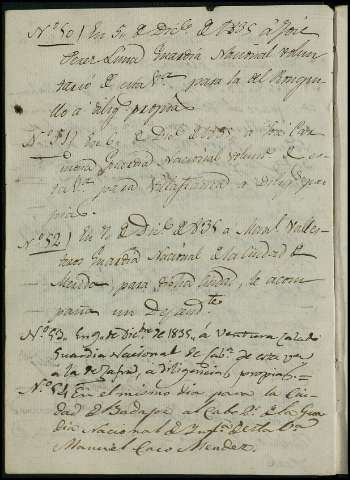 Nº 50) En 5 de Dicᵉ de 1835 á José
Perez Luna Guardia Nacional volun
tario de esta Vᵃ para la del
á diligᵃ propia
Nº 51) En 6 de Dicᵉ de 1835 á José Car
Guardia Nacional volunᵒ de es
ta Vᵃ para Villafranca á Diligᵃ pro
pia
Nº 52) En 7 de Dicᵉ de 1835 á Manˡ Valle
Guardia Nacional de la Ciudad de
Merida, para dicha Ciudad, le acom
paña un
Nº 53. En 9 de Dicᵇʳᵉ de 1835, á Ventura
Guardia Nacional de Cabᵃ de esta vᵃ
á la de Zafra, á diligencias propias
Nº 54 En el mismo dia para la Ciu
dad de Badajoz al Cabo 2º de la Gua
dia Nacional de Infᵃ de esta Vᵃ
Manuel Caro Mendez